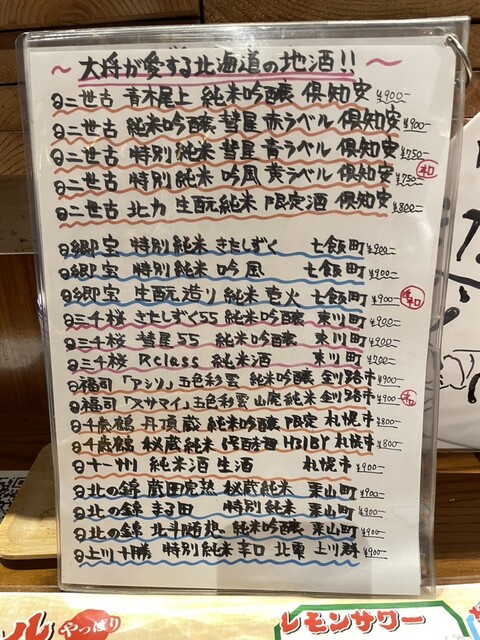 ～大将が愛する北海道の地酒!!～
二世古 青木尾上 純米吟醸 倶知安 ¥900-
二世古 純米吟醸 彗星 赤ラベル 倶知安 ¥900-
二世古 特別純米 彗星 青ラベル 倶知安 ¥750-
二世古 特別純米 吟風 黄ラベル 倶知安 ¥750-
二世古 北力 生酛純米 限定酒 倶知安 ¥800-
郷宝 特別純米 きたしずく 七飯町 ¥900-
郷宝 特別純米 吟風 七飯町 ¥900-
郷宝 生酛造り 純米 壱火 七飯町 ¥900-
三千桜 きたしずく55 純米吟醸 東川町 ¥900-
三千桜 彗星55 純米吟醸 東川町 ¥900-
三千桜 Rclass 純米酒 東川町 ¥700-
福司「アシリ」五色彩雲 純米吟醸 釧路市 ¥900-
福司「スサマイ」五色彩雲 山廃純米 釧路市 ¥900-
千歳鶴 丹頂蔵 純米吟醸 限定 札幌市 ¥800-
千歳鶴 秘蔵純米 札幌市 ¥800-
十一州 純米酒 生酒 札幌市 ¥900-
北の錦 蔵囲完熟 秘蔵純米 栗山町 ¥900-
北の錦 まる田 特別純米 栗山町 ¥900-
北の錦 北斗随想 純米吟醸 栗山町 ¥900-
上川 十勝 特別純米 辛口 上川郡 ¥900-
やっぱり
レモンサワー